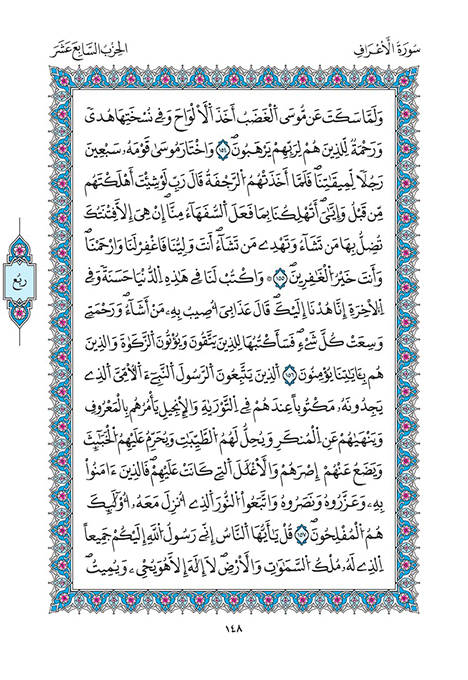 سُورَةُ الْأَعْرَافِ
الحِزْبُ السَّابِعَ عَشَرَ
وَلَمَّا سَكَتَ عَن مُّوسَى اَ۬لْغَضَبُ أَخَذَ اَ۬لْأَلْوَاحَ وَفِي نُسْخَتِهَا هُدىٗ
وَرَحْمَةٞ لِّلذِينَ هُمْ لِرَبِّهِمْ يَرْهَبُونَۖ ١٥٤ وَاخْتَارَ مُوسَىٰ قَوْمَهُۥ سَبْعِينَ
رَجُلاٗ لِّمِيقَٰتِنَاۖ فَلَمَّآ أَخَذَتْهُمُ اُ۬لرَّجْفَةُ قَالَ رَبِّ لَوْ شِئْتَ أَهْلَكْتَهُم
مِّن قَبْلُ وَإِيَّٰيَۖ أَتُهْلِكُنَا بِمَا فَعَلَ اَ۬لسُّفَهَآءُ مِنَّآۖ إِنْ هِيَ إِلَّا فِتْنَتُكَ
تُضِلُّ بِهَا مَن تَشَآءُ وَتَهْدِے مَن تَشَآءُۖ اَنتَ وَلِيُّنَا فَاغْفِرْ لَنَا وَارْحَمْنَاۖ
وَأَنتَ خَيْرُ اُ۬لْغَٰفِرِينَۖ ١٥٥ ۞ وَاكْتُبْ لَنَا فِي هَٰذِهِ اِ۬لدُّنْيَا حَسَنَةٗ وَفِي
اِ۬لْأٓخِرَةِ إِنَّا هُدْنَآ إِلَيْكَۖ قَالَ عَذَابِيَ أُصِيبُ بِهِۦ مَنْ أَشَآءُۖ وَرَحْمَتِي
وَسِعَتْ كُلَّ شَےْءٖۖ فَسَأَكْتُبُهَا لِلذِينَ يَتَّقُونَ وَيُؤْتُونَ اَ۬لزَّكَوٰةَ وَالذِينَ
هُم بِـَٔايَٰتِنَا يُؤْمِنُونَۖ ١٥٦ اَ۬لذِينَ يَتَّبِعُونَ اَ۬لرَّسُولَ اَ۬لنَّبِيٓءَ اَ۬لْأُمِّيَّ اَ۬لذِے
يَجِدُونَهُۥ مَكْتُوباً عِندَهُمْ فِي اِ۬لتَّوْرَيٰةِ وَالْإِنجِيلِ يَأْمُرُهُم بِالْمَعْرُوفِ
وَيَنْهَيٰهُمْ عَنِ اِ۬لْمُنكَرِ وَيُحِلُّ لَهُمُ اُ۬لطَّيِّبَٰتِ وَيُحَرِّمُ عَلَيْهِمُ اُ۬لْخَبَٰٓئِثَ
وَيَضَعُ عَنْهُمْ إِصْرَهُمْ وَالْأَغْلَٰلَ اَ۬لتِي كَانَتْ عَلَيْهِمْۖ فَالذِينَ ءَامَنُواْ
بِهِۦ وَعَزَّرُوهُ وَنَصَرُوهُ وَاتَّبَعُواْ اُ۬لنُّورَ اَ۬لذِےٓ أُنزِلَ مَعَهُۥٓ أُوْلَٰٓئِكَ
هُمُ اُ۬لْمُفْلِحُونَۖ ١٥٧ قُلْ يَٰٓأَيُّهَا اَ۬لنَّاسُ إِنِّي رَسُولُ اُ۬للَّهِ إِلَيْكُمْ جَمِيعاً
اِ۬لذِے لَهُۥ مُلْكُ اُ۬لسَّمَٰوَٰتِ وَالْأَرْضِۖ لَآ إِلَٰهَ إِلَّا هُوَ يُحْيِۦ وَيُمِيتُۖ
رُبُع
١٤٨